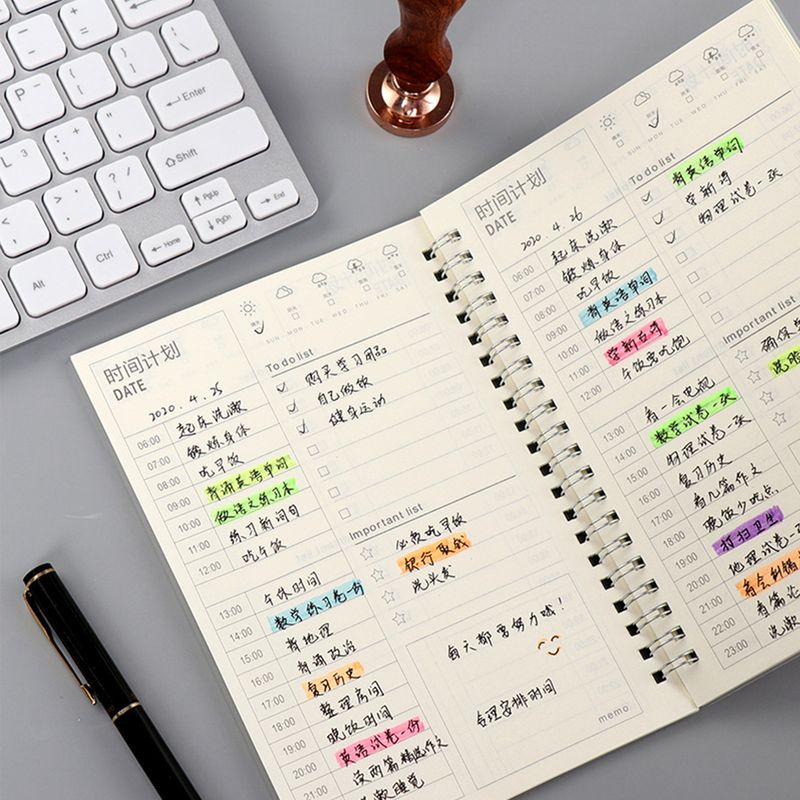 Enter
Shift
PgUp
PgDn
Home
End
Alt
Ctrl
时间计划
DATE
2020.4.25
SUN MON TUE WED THU FRI SAT
06:00 起床洗漱
07:00 锻炼身体
08:00 吃早饭
09:00 背诵英语单词
10:00 做语文练习本
11:00 练习新词句
12:00 吃午饭
13:00 午休时间
14:00 数学练习卷一份
15:00 背地理
16:00 背诵政治
17:00 复习历史
18:00 整理房间
19:00 晚饭时间
20:00 英语试卷一份
21:00 读两篇精选作文
洗漱睡觉
To do list
购买学习用品
自己做饭
健身运动
Important list
必须吃早饭
银行取钱
洗头发
每天都要努力哦!
合理安排时间
memo
时间计划
DATE
2020.4.26
SUN MON TUE WED THU FRI SAT
06:00 起床洗漱
07:00 锻炼身体
08:00 吃早饭
09:00 背英语单词
10:00 做语文练习本
11:00 学新古诗
12:00 午饭要吃饱
13:00 看一会电视
14:00 数学试卷一张
15:00 物理试卷一张
16:00 复习历史
17:00 看几篇作文
18:00 晚饭少吃点
19:00 打扫卫生
20:00 地理试卷一
21:00 看会刷错
22:00 看篇
23:00 洗漱
To do list
背英语单词
学新诗
物理试卷一张
Important list
确保